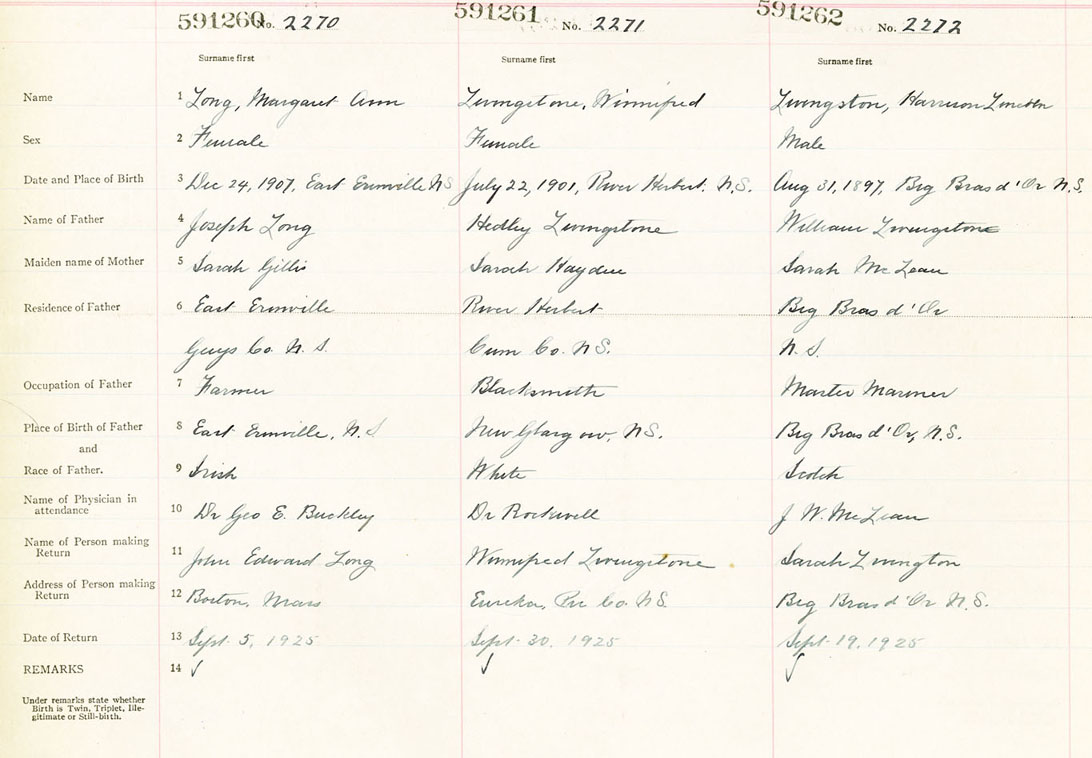 591260 No. 2270 591261 No. 2271 591262 No. 2272
Surname first Surname first Surname first
Name 1 Long, Margaret Ann Livingstone, Winnifred Livingston, Harrison Lincoln
Sex 2 Female Female Male
Date and Place of Birth 3 Dec 24, 1907, East Erinville N S July 22, 1901, River Herbert, N.S. Aug 31, 1897, Big Bras d'Or N.S.
Name of Father 4 Joseph Long Hedley Livingstone William Livingstone
Maiden name of Mother 5 Sarah Gillis Sarah Hayden Sarah McLean
Residence of Father 6 East Erinville River Herbert Big Bras d'Or
Guys Co. N. S. Cum Co. N S. N. S.
Occupation of Father 7 Farmer Blacksmith Master Mariner
Place of Birth of Father 8 East Erinville, N. S New Glasgow, N.S. Big Bras d'Or, N.S.
and
Race of Father. 9 Irish White Scotch
Name of Physician in
attendance 10 Dr Geo E. Buckley Dr Rockwell J W. McLean
Name of Person making
Return 11 John Edward Long Winnifred Livingstone Sarah Livington
Address of Person making
Return 12 Boston, Mass Eureka, Pic Co. N.S. Big Bras d'Or N.S.
Date of Return 13 Sept. 5, 1925 Sept. 30, 1925 Sept. 19, 1925
REMARKS 14
Under remarks state whether
Birth is Twin, Triplet, Ille-
gitimate or Still-birth.